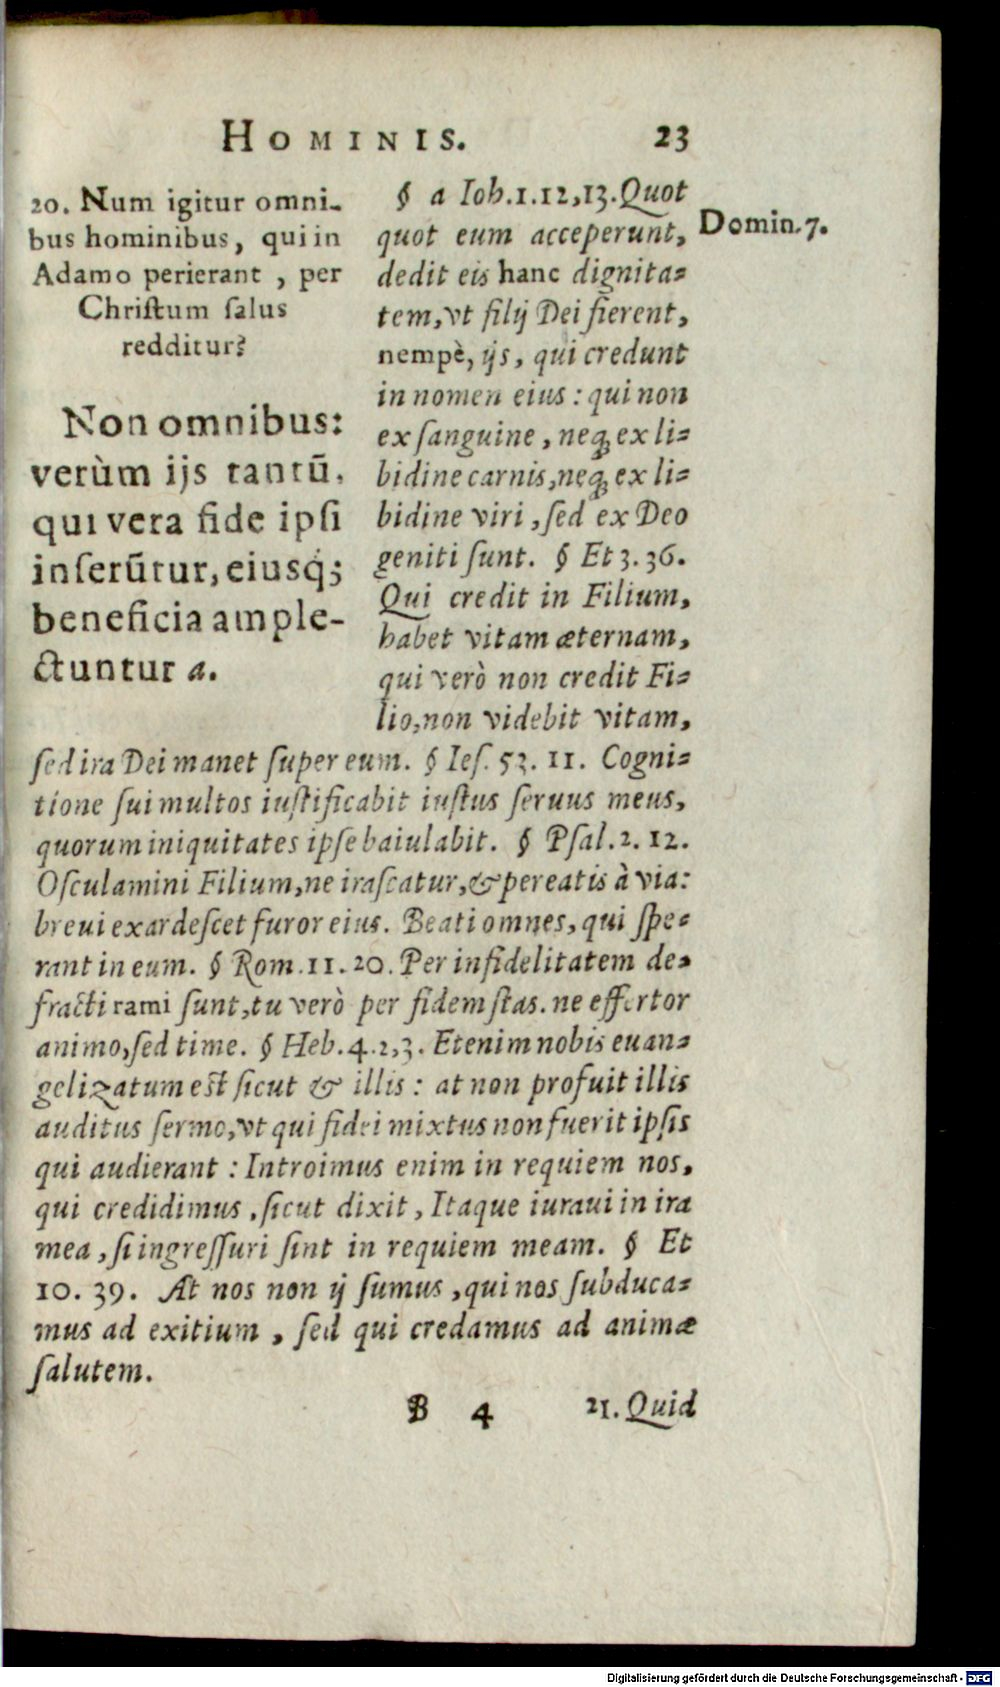 HOMINIS. 23
20. Num igitur omni-
bus hominibus, qui in
Adamo perierant, per
Chriſtum ſalus
redditur?
Non omnibus:
verùm ijs tantū,
qui vera fide ipſi
inſerūtur, eiusq́;
beneficia ample-
ctuntur a.
§ a Ioh. 1. 12, 13. Quot
quot eum acceperunt,
dedit eis hanc dignita-
tem, vt filij Dei fierent,
nempè, ijs, qui credunt
in nomen eius: qui non
ex ſanguine, neq; ex li-
bidine carnis, neq; ex li-
bidine viri, ſed ex Deo
geniti ſunt. § Et 3. 36.
Qui credit in Filium,
habet vitam æternam,
qui verò non credit Fi-
lio, non videbit vitam,
Domin. 7.
ſed ira Dei manet ſuper eum. § Ieſ. 53. 11. Cogni-
tione ſui multos iuſtificabit iuſtus ſeruus meus,
quorum iniquitates ipſe baiulabit. § Pſal. 2. 12.
Oſculamini Filium, ne iraſcatur, & pereatis à via:
breui exardeſcet furor eius. Beati omnes, qui ſpe-
rant in eum. § Rom. 11. 20. Per infidelitatem de-
fracti rami ſunt, tu verò per fidem ſtas. ne effertor
animo, ſed time. § Heb. 4. 2, 3. Etenim nobis euan-
gelizatum eſt ſicut & illis: at non profuit illis
auditus ſermo, vt qui fidei mixtus non fuerit ipſis
qui audierant: Introimus enim in requiem nos,
qui credidimus, ſicut dixit, Itaque iuraui in ira
mea, ſi ingreſſuri ſint in requiem meam. § Et
10. 39. At nos non ij ſumus, qui nos ſubduca-
mus ad exitium, ſed qui credamus ad animæ
ſalutem.
B 4 21. Quid
Digitalisierung gefördert durch die Deutsche Forschungsgemeinschaft - DFG